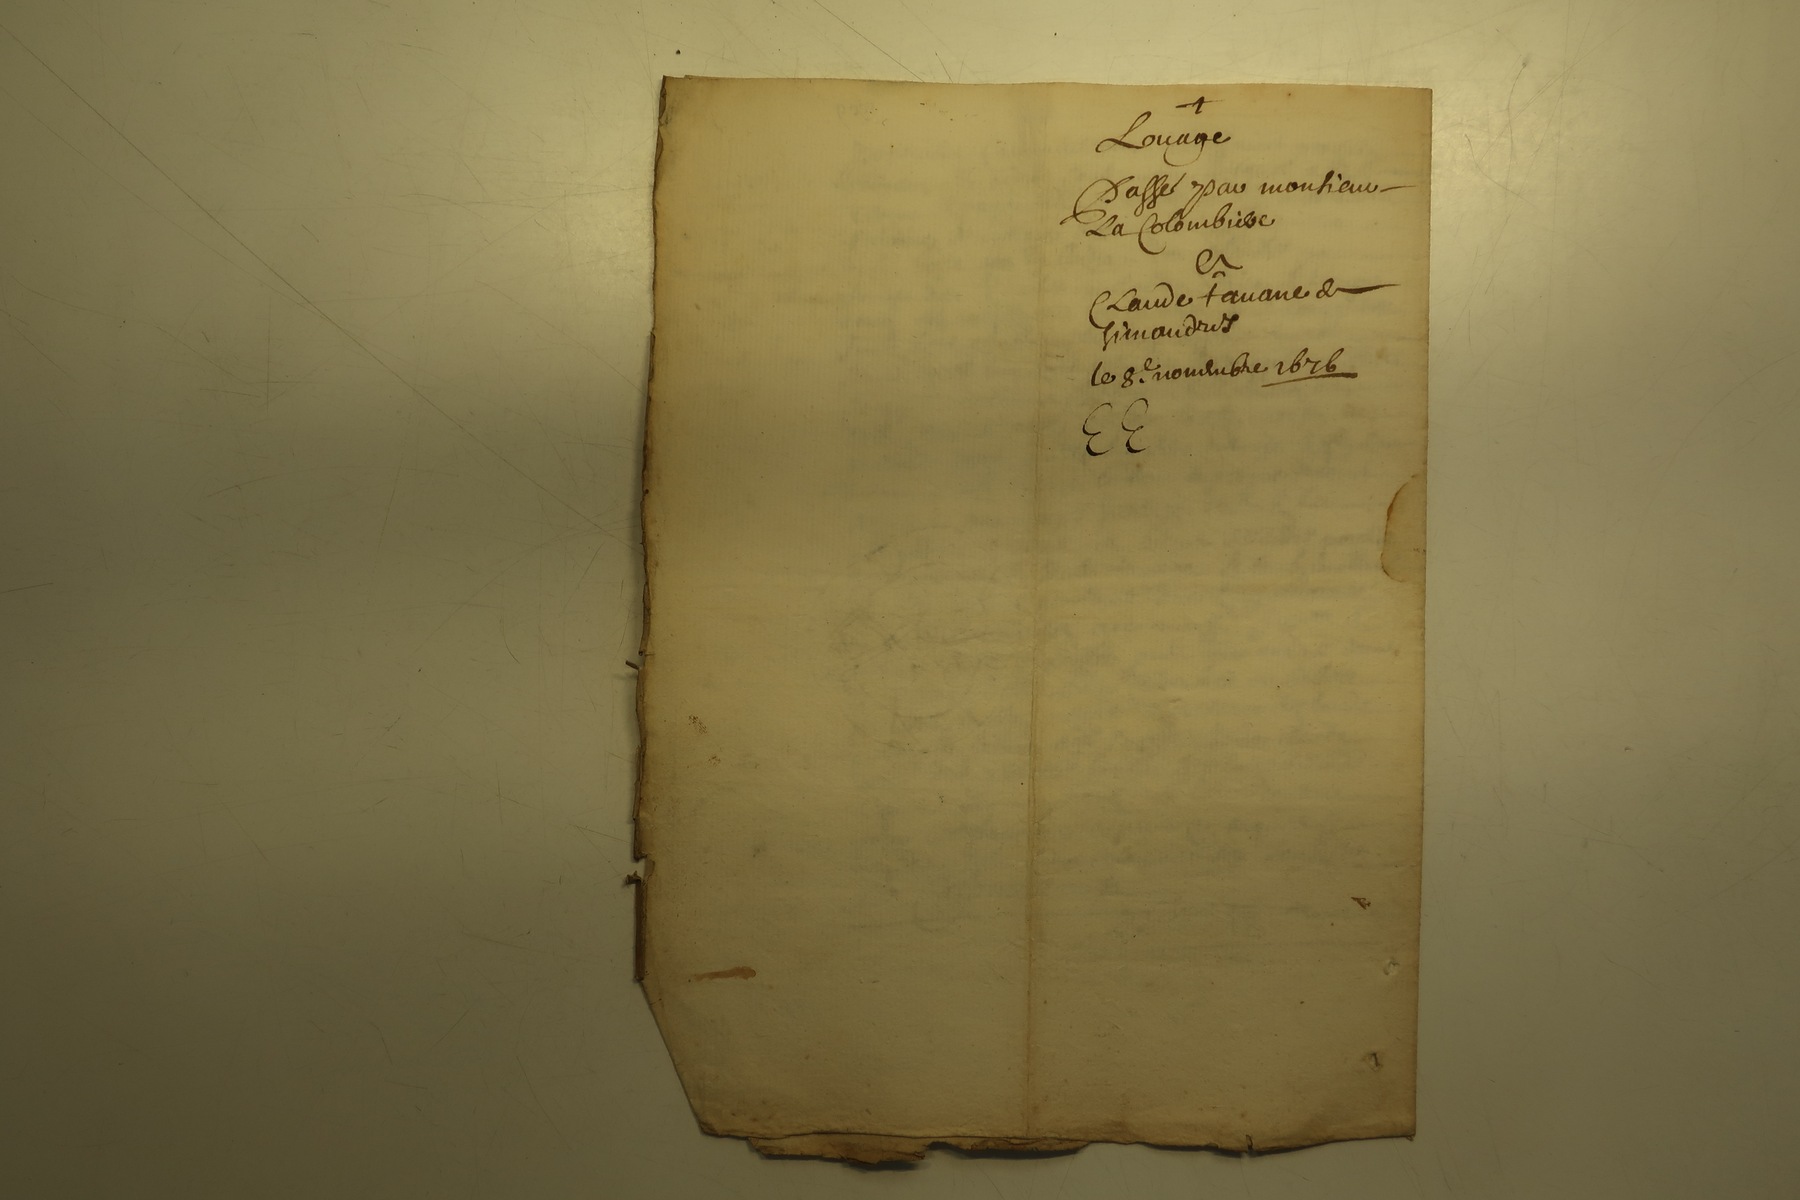 +
Louage
Passé par monsieur
La Colombiere
Et
Claude favane de
Simandres
le 8.e novembre 1676
EE